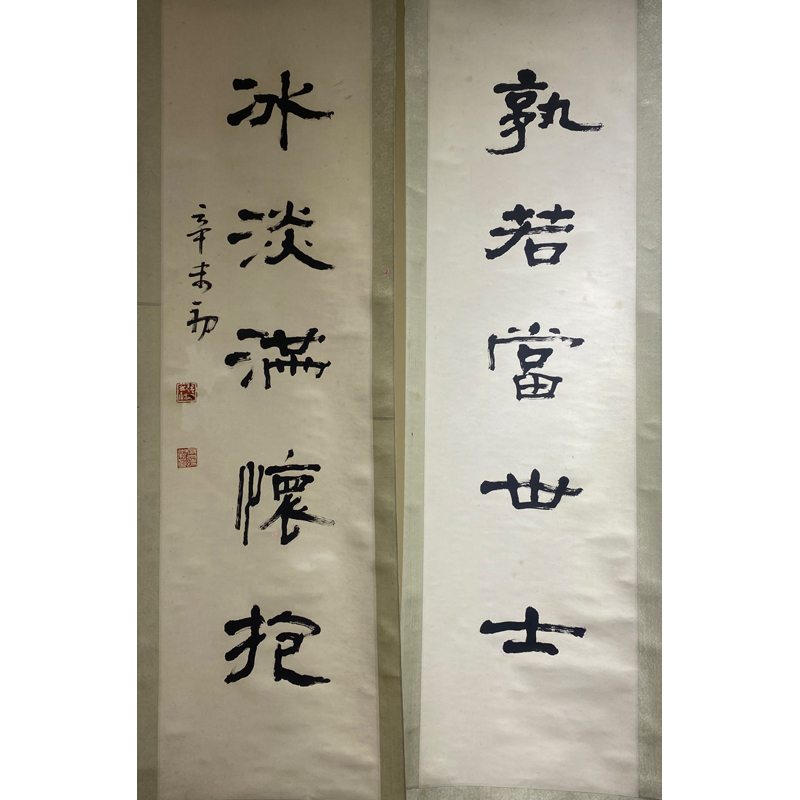 孰若當世士
冰淡滿懷抱
辛未初